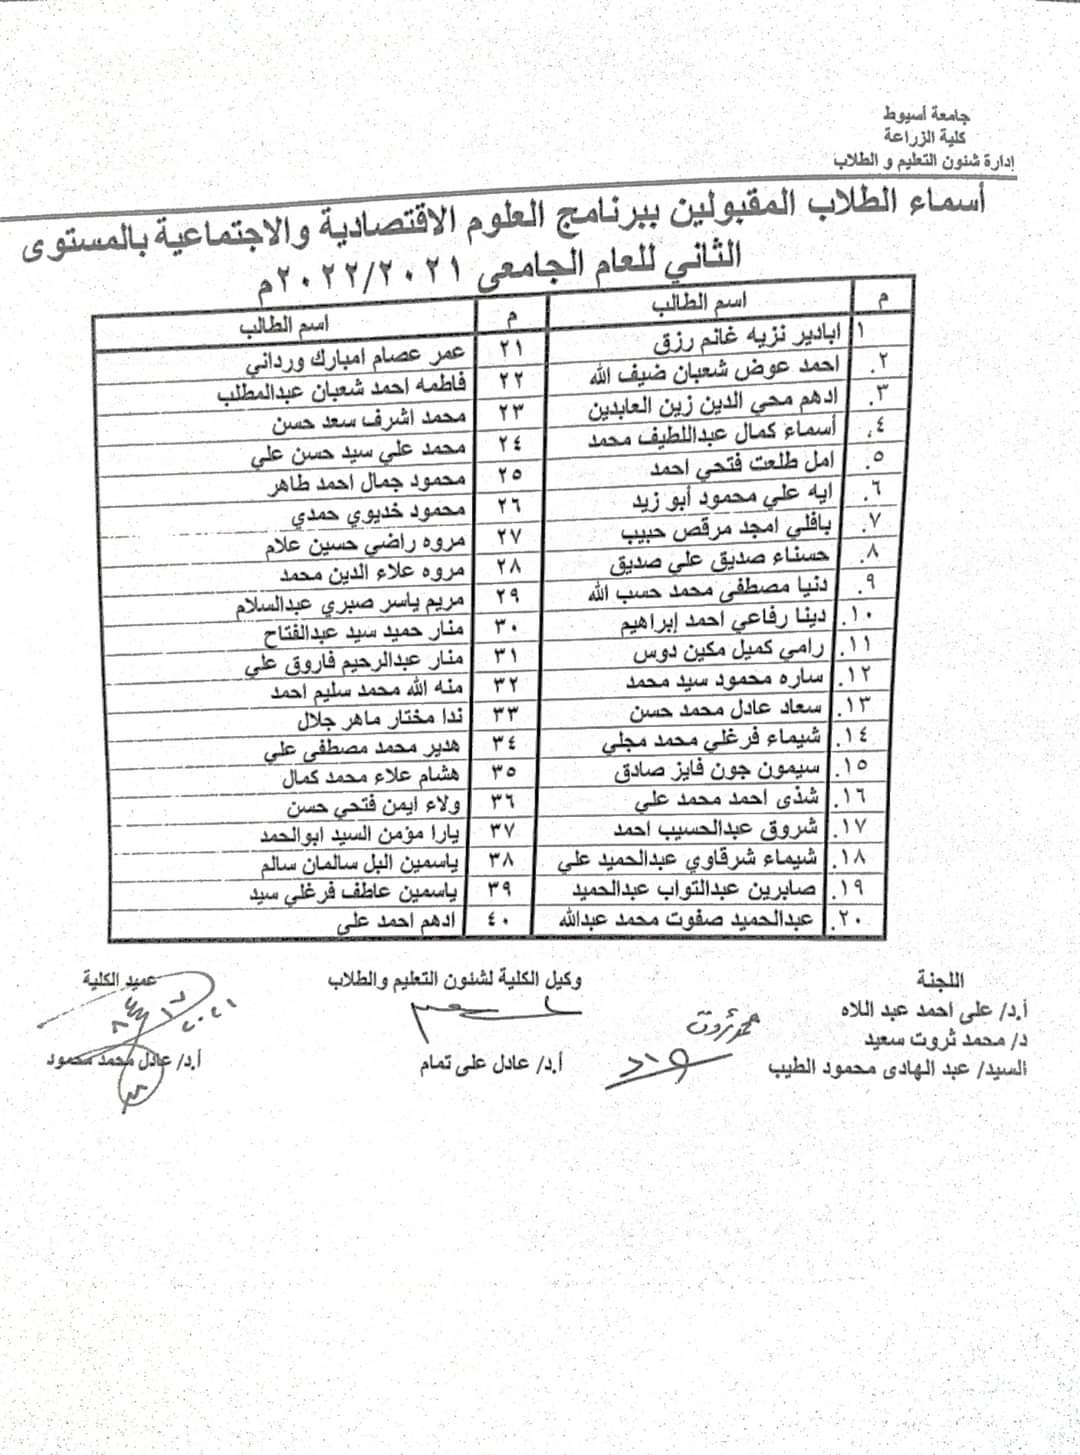 جامعة أسيوط
كلية الزراعة
إدارة شئون التعليم و الطلاب
أسماء الطلاب المقبولين ببرنامج العلوم الاقتصادية والاجتماعية بالمستوى
الثاني للعام الجامعى ٢٠٢٢/٢٠٢١م
م اسم الطالب م اسم الطالب
١ ابادير نزيه غانم رزق ٢١ عمر عصام امبارك ورداني
٢. احمد عوض شعبان ضيف الله ٢٢ فاطمه احمد شعبان عبدالمطلب
٣. ادهم محي الدين زين العابدين ٢٣ محمد اشرف سعد حسن
٤. أسماء كمال عبداللطيف محمد ٢٤ محمد علي سيد حسن علي
٥. امل طلعت فتحي احمد ٢٥ محمود جمال احمد طاهر
٦. ايه علي محمود أبو زيد ٢٦ محمود خديوي حمدي
٧. بافلي امجد مرقص حبيب ٢٧ مروه راضي حسين علام
٨. حسناء صديق علي صديق ٢٨ مروه علاء الدين محمد
٩. دنيا مصطفى محمد حسب الله ٢٩ مريم ياسر صبري عبدالسلام
١٠. دينا رفاعي احمد إبراهيم ٣٠ منار حميد سيد عبدالفتاح
١١. رامي كميل مكين دوس ٣١ منار عبدالرحيم فاروق علي
١٢. ساره محمود سيد محمد ٣٢ منه الله محمد سليم احمد
١٣. سعاد عادل محمد حسن ٣٣ ندا مختار ماهر جلال
١٤. شيماء فرغلي محمد مجلي ٣٤ هدير محمد مصطفى علي
١٥. سيمون جون فايز صادق ٣٥ هشام علاء محمد كمال
١٦. شذى احمد محمد علي ٣٦ ولاء ايمن فتحي حسن
١٧. شروق عبدالحسيب احمد ٣٧ يارا مؤمن السيد ابوالحمد
١٨. شيماء شرقاوي عبدالحميد علي ٣٨ ياسمين البل سالمان سالم
١٩. صابرين عبدالتواب عبدالحميد ٣٩ ياسمين عاطف فرغلي سيد
٢٠. عبدالحميد صفوت محمد عبدالله ٤٠ ادهم احمد على
اللجنة وكيل الكلية لشئون التعليم والطلاب عميد الكلية
أ.د/ على احمد عبد اللاه
محمد ثروت
د/ محمد ثروت سعيد
السيد/ عبد الهادى محمود الطيب أ.د/ عادل على تمام أ.د/ عادل محمد محمود